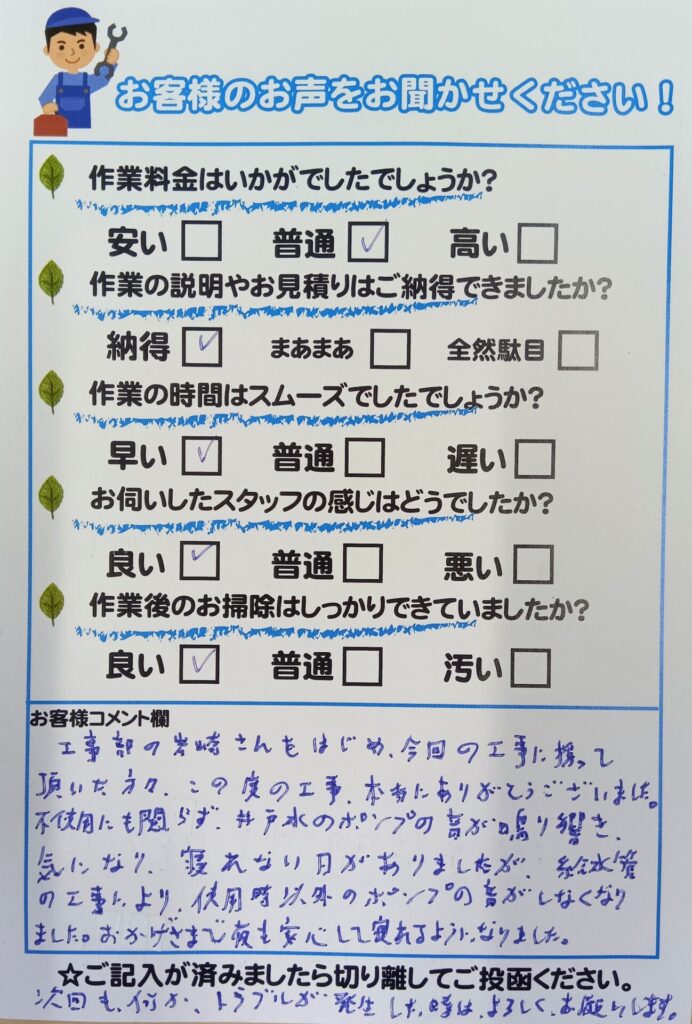 お客様のお声をお聞かせください！
作業料金はいかがでしたでしょうか?
安い 普通 高い
作業の説明やお見積りはご納得できましたか?
納得 まあまあ 全然駄目
作業の時間はスムーズでしたでしょうか?
早い 普通 遅い
お伺いしたスタッフの感じはどうでしたか?
良い 普通 悪い
作業後のお掃除はしっかりできていましたか?
良い 普通 汚い
お客様コメント欄
工事部の岩崎さんをはじめ、今回の工事に携って
頂いた方々、この度の工事、本当にありがとうございました。
不使用にも関らず、井戸水のポンプの音が鳴り響き、
気になり、寝れない日がありましたが、給水管
の工事により、使用時以外のポンプの音がしなくなり
ました。おかげさまで夜も安心して寝れるようになりました。
☆ご記入が済みましたら切り離してご投函ください。
次回も、何か、トラブルが発生した時は、よろしくお願いします。